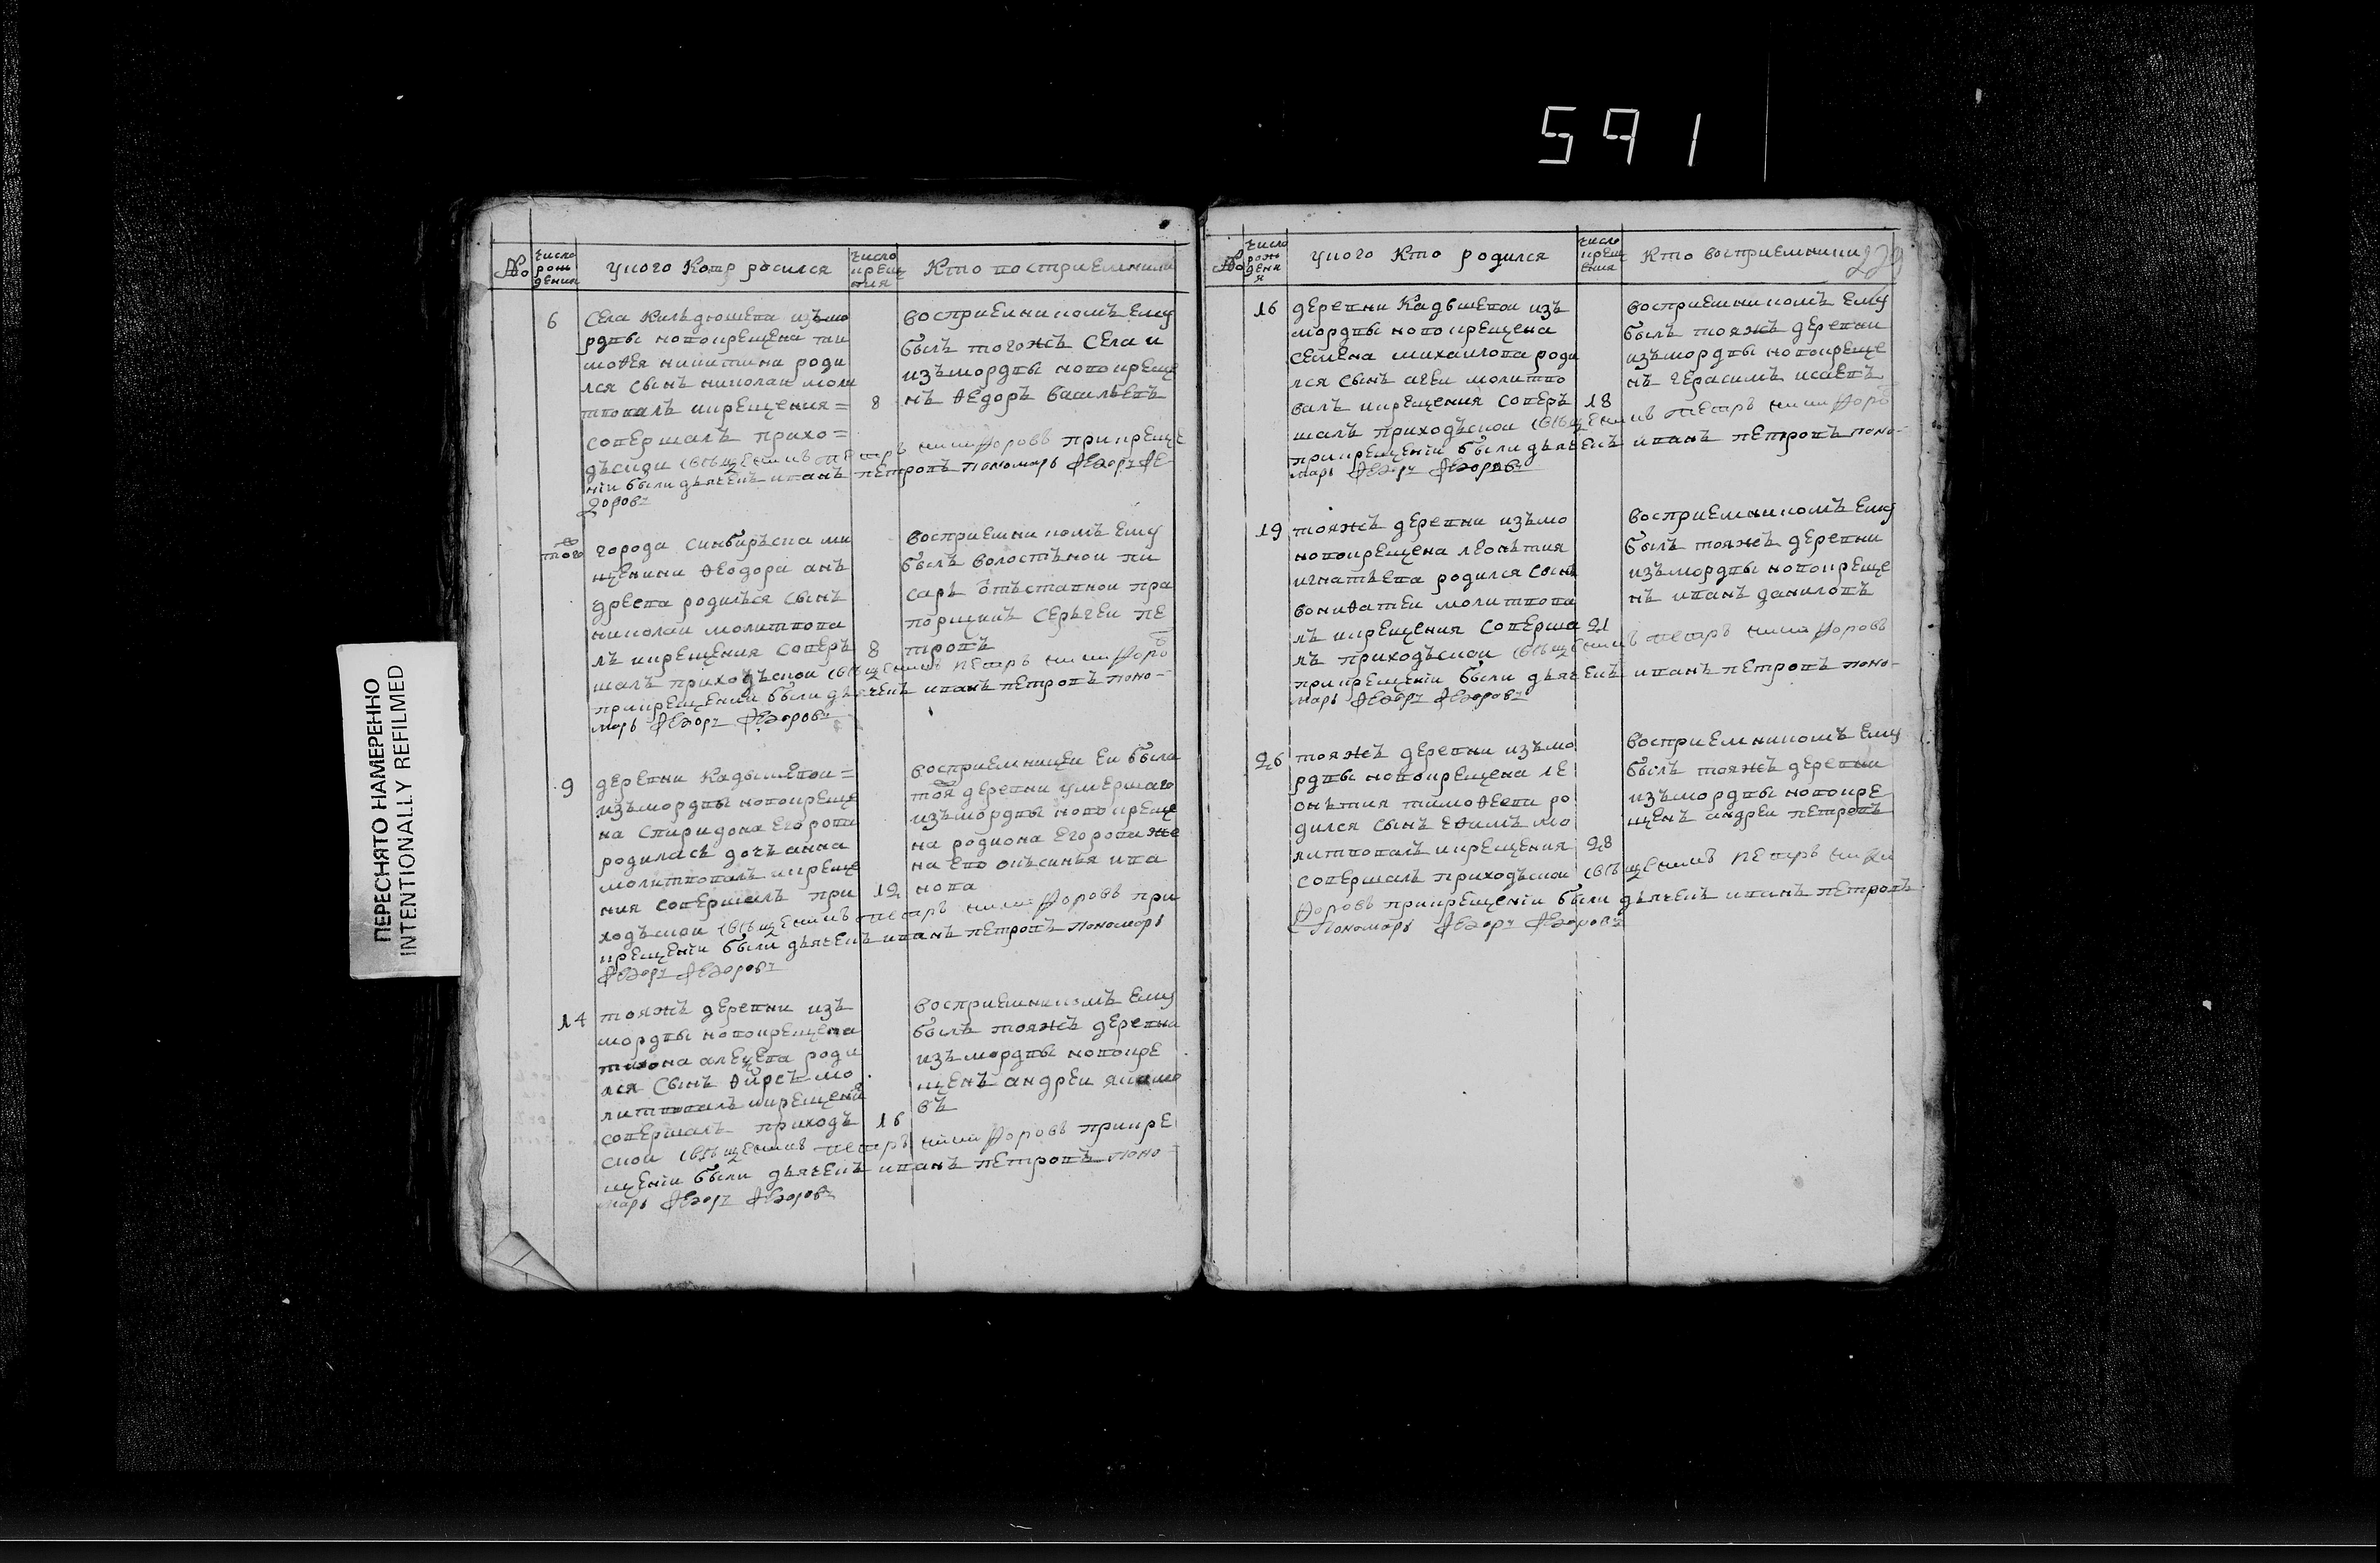 591
ПЕРЕСНЯТО НАМЕРЕННО
INTENTIONALLY REFILMED
№
число рождения
у кого кто родился
число крещения
кто восприемники
6
села Кильдюшева изъ мо
рдвы новокрещена ти
моѳея никитина роди
лся сынъ николаи моли
твовалъ икрещения =
8
совершалъ прихо=
дъскои священникъ петръ никифоровъ прикреще
нiи были дьячекъ иванъ петровъ пономарь Федоръ Фе
доровъ
восприемникомъ ему
былъ тогожъ села и
изъ мордвы новокреще
нъ ѳедоръ васильевъ
того
города синбирьска ми
щенина ѳеодора анъ
дреева родилъся сынъ
николаи молитвова
лъ икрещения соверъ
8
шалъ приходъскои священникъ петръ никифоровъ
прикрещении были дьячекъ иванъ петровъ поно-
марь Федоръ Федоровъ
восприемникомъ ему
былъ волостьнои пи
саръ отъставнои пра
порщикъ серьгеи пе
тровъ
9
деревни Кадышевои =
изъ мордвы новокреще
на спиридона егорова
родилась дочъ анна
молитвовалъ икреще
ния совершалъ при
12
ходъскои священникъ петръ никифоровъ при
крещенiи были дьячекъ иванъ петровъ пономарь
Федоръ Федоровъ
восприемницеи еи была
тоя деревни умершаго
изъ мордвы новокреще
на родиона егорова же
на ево оксинья ива
нова
14
тояжъ деревни изъ
мордвы новокрещена
тихона алеѯева роди
лся сынъ ѳирсъ мо
литвовалъ икрещения
совершалъ приходъ
16
скои священникъ петръ никифоровъ прикре
щенiи были дьячекъ иванъ петровъ поно-
марь Федоръ Федоровъ
восприемникомъ ему
былъ тояжъ деревни
изъ мордвы новокре
щенъ андреи якимо
въ
№
число рождения
у кого кто родился
число крещения
кто восприемники
16
деревни Кадышевои изъ
мордвы новокрещена
семена михаилова роди
лся сынъ агеи молитво
валъ икрещения соверъ
18
шалъ приходъскои священникъ петръ никифоровъ
прикрещенiи были дьячекъ иванъ петровъ поно-
марь Федоръ Федоровъ
восприемникомъ ему
былъ тояжъ деревни
изъ мордвы новокреще
нъ герасимъ исаевъ
19
тояжъ деревни изъ мо
новокрещена леонътия
игнатьева родился сынъ
вониѳатеи молитвова
лъ икрещения соверша
21
лъ приходъскои священникъ петръ никифоровъ
прикрещенiи были дьячекъ иванъ петровъ поно-
марь Федоръ Федоровъ
восприемникомъ ему
былъ тояжъ деревни
изъ мордвы новокреще
нъ иванъ даниловъ
26
тояжъ деревни изъ мо
рдвы новокрещена ле
онътия тимоѳеева ро
дился сынъ еѳимъ мо
литвовалъ икрещения
28
совершалъ приходъскои священникъ петръ ники
форовъ прикрещенiи были дьячекъ иванъ петровъ
пономарь Федоръ Федоровъ
восприемникомъ ему
былъ тояжъ деревни
изъ мордвы новокре
щенъ андреи петровъ